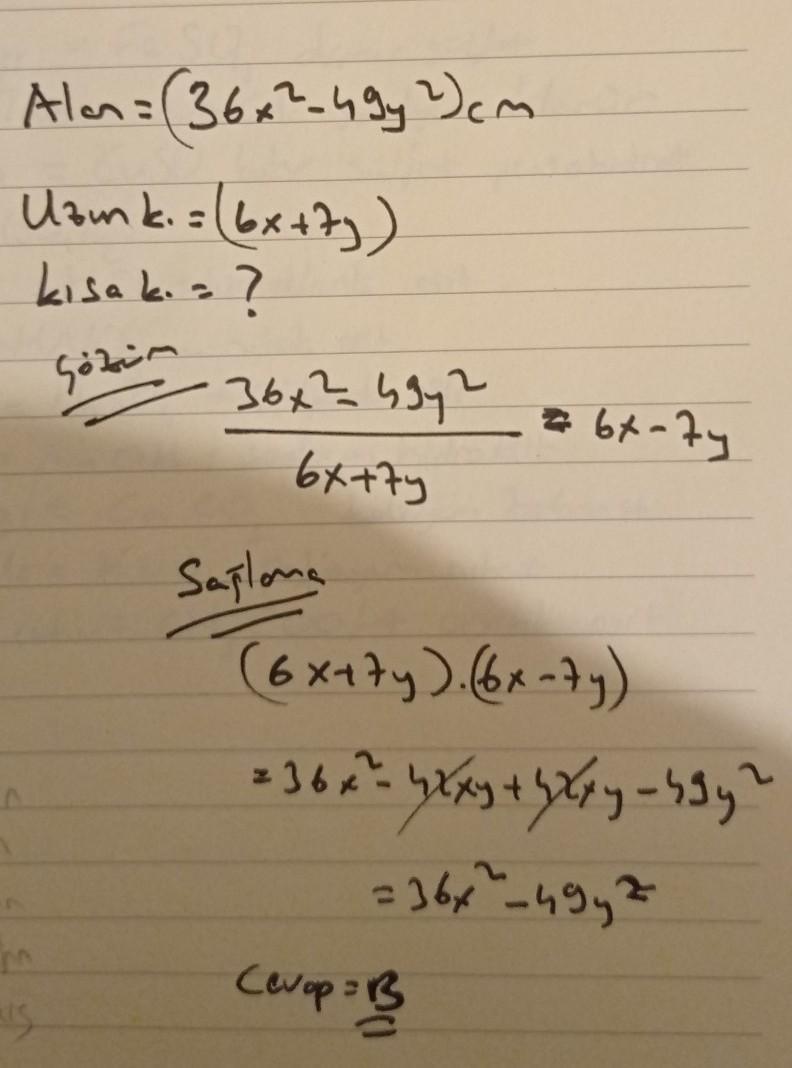 Alan = (36x² - 49y²) cm
Uzun k. = (6x+7y)
kısa k. = ?
Çözüm
36x² - 49y²
6x+7y
= 6x - 7y
Sağlama
(6x+7y).(6x-7y)
= 36x² - 42xy + 42xy - 49y²
= 36x² - 49y²
Cevap = B